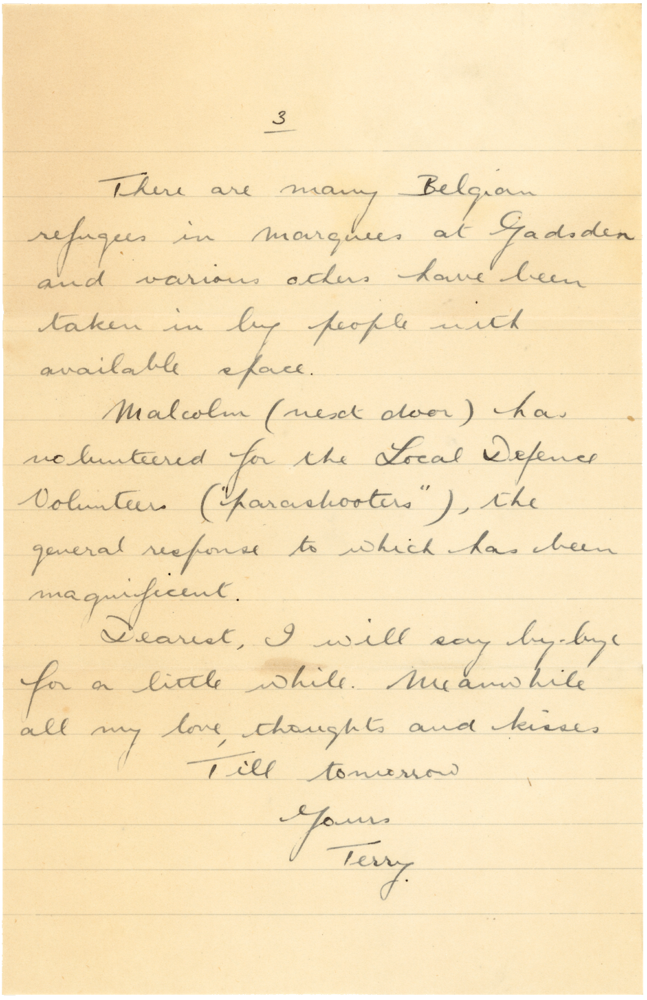 3
There are many Belgian
refugees in marquees at Gadsden
and various others have been
taken in by people with
available space.
Malcolm (next door) has
volunteered for the Local Defence
Volunteers ("parashooters"), the
general response to which has been
magnificent.
Dearest, I will say by-bye
for a little while. Meanwhile
all my love, thoughts and kisses
Till tomorrow
Yours
Terry.